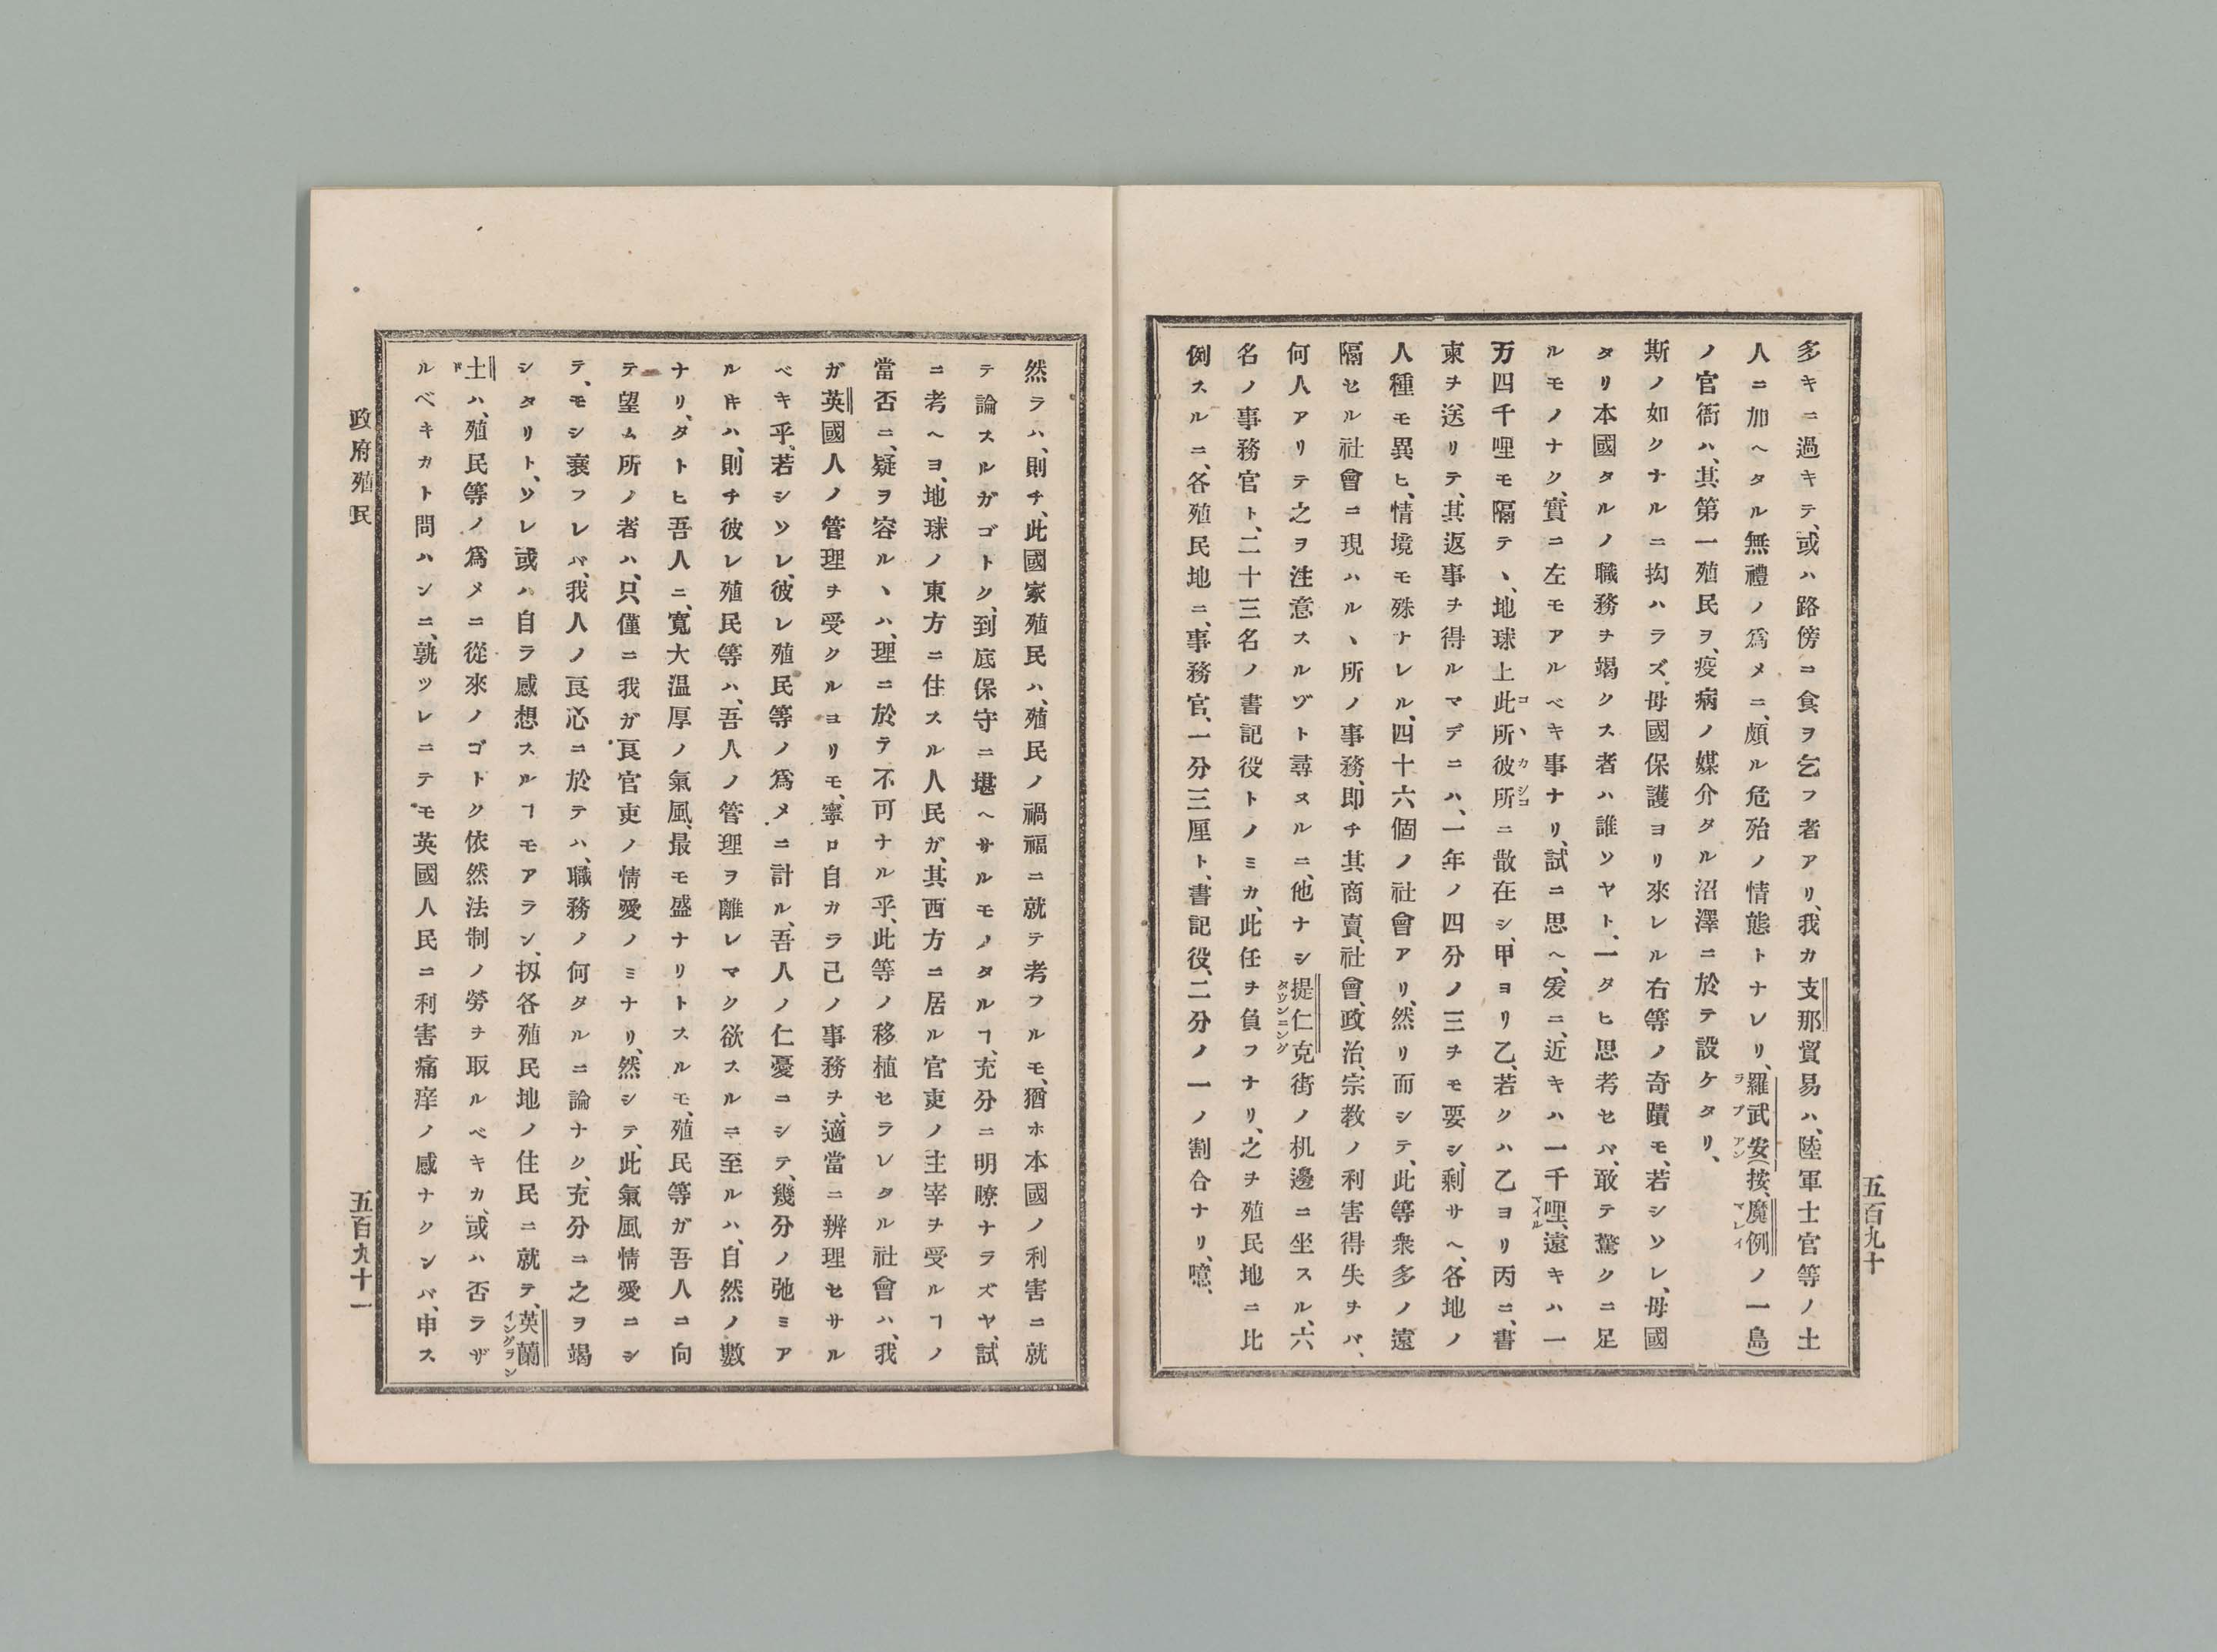 多キニ過キテ、或ハ路傍ニ食ヲ乞フ者アリ、我カ支那貿易ハ、陸軍士官等ノ土
人ニ加ヘタル無禮ノ爲メニ、頗ル危殆ノ情態トナレリ、羅武安(按、魔例ノ一島)
ラブアン
マレイ
ノ官衙ハ、其第一殖民ヲ、疫病ノ媒介タル沼澤ニ於テ設ケタリ、
斯ノ如クナルニ拘ハラズ、母國保護ヨリ來レル右等ノ奇蹟モ、若シソレ、母國
タリ本國タルノ職務ヲ竭クス者ハ誰ソヤト、一タヒ思考セバ、敢テ驚クニ足
ルモノナク、實ニ左モアルベキ事ナリ、試ニ思ヘ、爰ニ、近キハ一千哩、遠キハ一
マイル
万四千哩モ隔テヽ、地球上此所彼所ニ散在シ、甲ヨリ乙、若クハ乙ヨリ丙ニ、書
コヽカシコ
柬ヲ送リテ、其返事ヲ得ルマデニハ、一年ノ四分ノ三ヲモ要シ、剩サヘ、各地ノ
人種モ異ヒ、情境モ殊ナレル、四十六個ノ社會アリ、然リ而シテ、此等衆多ノ遠
隔セル社會ニ現ハルヽ所ノ事務、即チ其商賣、社會、政治、宗教ノ利害得失ヲバ、
何人アリテ之ヲ注意スルゾト尋ヌルニ、他ナシ提仁克街ノ机邊ニ坐スル、六
タウンニング
名ノ事務官ト、二十三名ノ書記役トノミカ、此任ヲ負フナリ、之ヲ殖民地ニ比
例スルニ、各殖民地ニ、事務官、一分三厘ト、書記役、二分ノ一ノ割合ナリ、噫、
五百九十
然ラハ、則チ、此國家殖民ハ、殖民ノ禍福ニ就テ考フルモ、猶ホ本國ノ利害ニ就
テ論スルガゴトク、到底保守ニ堪ヘサルモノタルヿ、充分ニ明瞭ナラズヤ、試
ニ考ヘヨ、地球ノ東方ニ住スル人民ガ、其西方ニ居ル官吏ノ主宰ヲ受ルヿノ
當否ニ、疑ヲ容ルヽハ、理ニ於テ不可ナル乎、此等ノ移植セラレタル社會ハ、我
ガ英國人ノ管理ヲ受クルヨリモ、寧ロ自カラ己ノ事務ヲ、適當ニ辨理セサル
ベキ乎、若シソレ、彼レ殖民等ノ爲メニ計ル、吾人ノ仁憂ニシテ、幾分ノ弛ミア
ルㇳキハ、則チ彼レ殖民等ハ、吾人ノ管理ヲ離レマク欲スルニ至ルハ、自然ノ數
ナリ、タトヒ吾人ニ、寬大温厚ノ氣風、最モ盛ナリトスルモ、殖民等ガ吾人ニ向
テ望ム所ノ者ハ、只僅ニ我ガ良官吏ノ情愛ノミナリ、然シテ、此氣風情愛ニシ
テ、モシ衰フレバ、我人ノ良心ニ於テハ、職務ノ何タルニ論ナク、充分ニ之ヲ竭
シタリト、ソレ或ハ自ラ感想スルヿモアラン、扨各殖民地ノ住民ニ就テ、英蘭
イングラン
土ハ、殖民等ノ爲メニ從來ノゴトク依然法制ノ勞ヲ取ルベキカ、或ハ否ラザ
ド
ルベキカト問ハンニ、孰ツレニテモ英國人民ニ利害痛痒ノ感ナクンバ、申ス
政府殖民
五百九十一